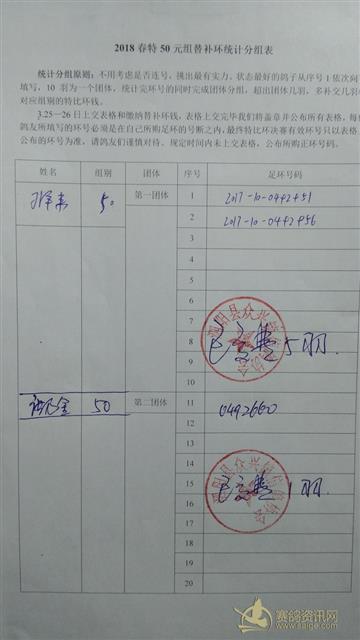 2018春特50元组替补环统计分组表
统计分组原则：不用考虑是否连号，挑出最有实力、状态最好的鸽子从序号1依次向
填写，10羽为一个团体，统计完环号的同时完成团体分组，超出团体几羽，多补交几羽
对应组别的特比环钱。
3.25－26日上交表格和缴纳替补环钱，表格上交完毕我们将盖章并公布所有表格，每位
鸽友所填写的环号必须是在自己所购足环的号断之内，最终特比环决赛有效环号只以表格
公布的环号为准，请鸽友们谨慎对待。规定时间内未上交表格，公布所购正环号码。
姓名 组别 团体 序号 足环号码
50 第一团体 1 2017-10-0492451
2 2017-10-0492456
3
4
5
6
7
8 已交费5羽
9
10
50 第二团体 11 0492660
12
13
14
15 已交费1羽
16
17
18
19
20
赛鸽资讯网
www.saige.com